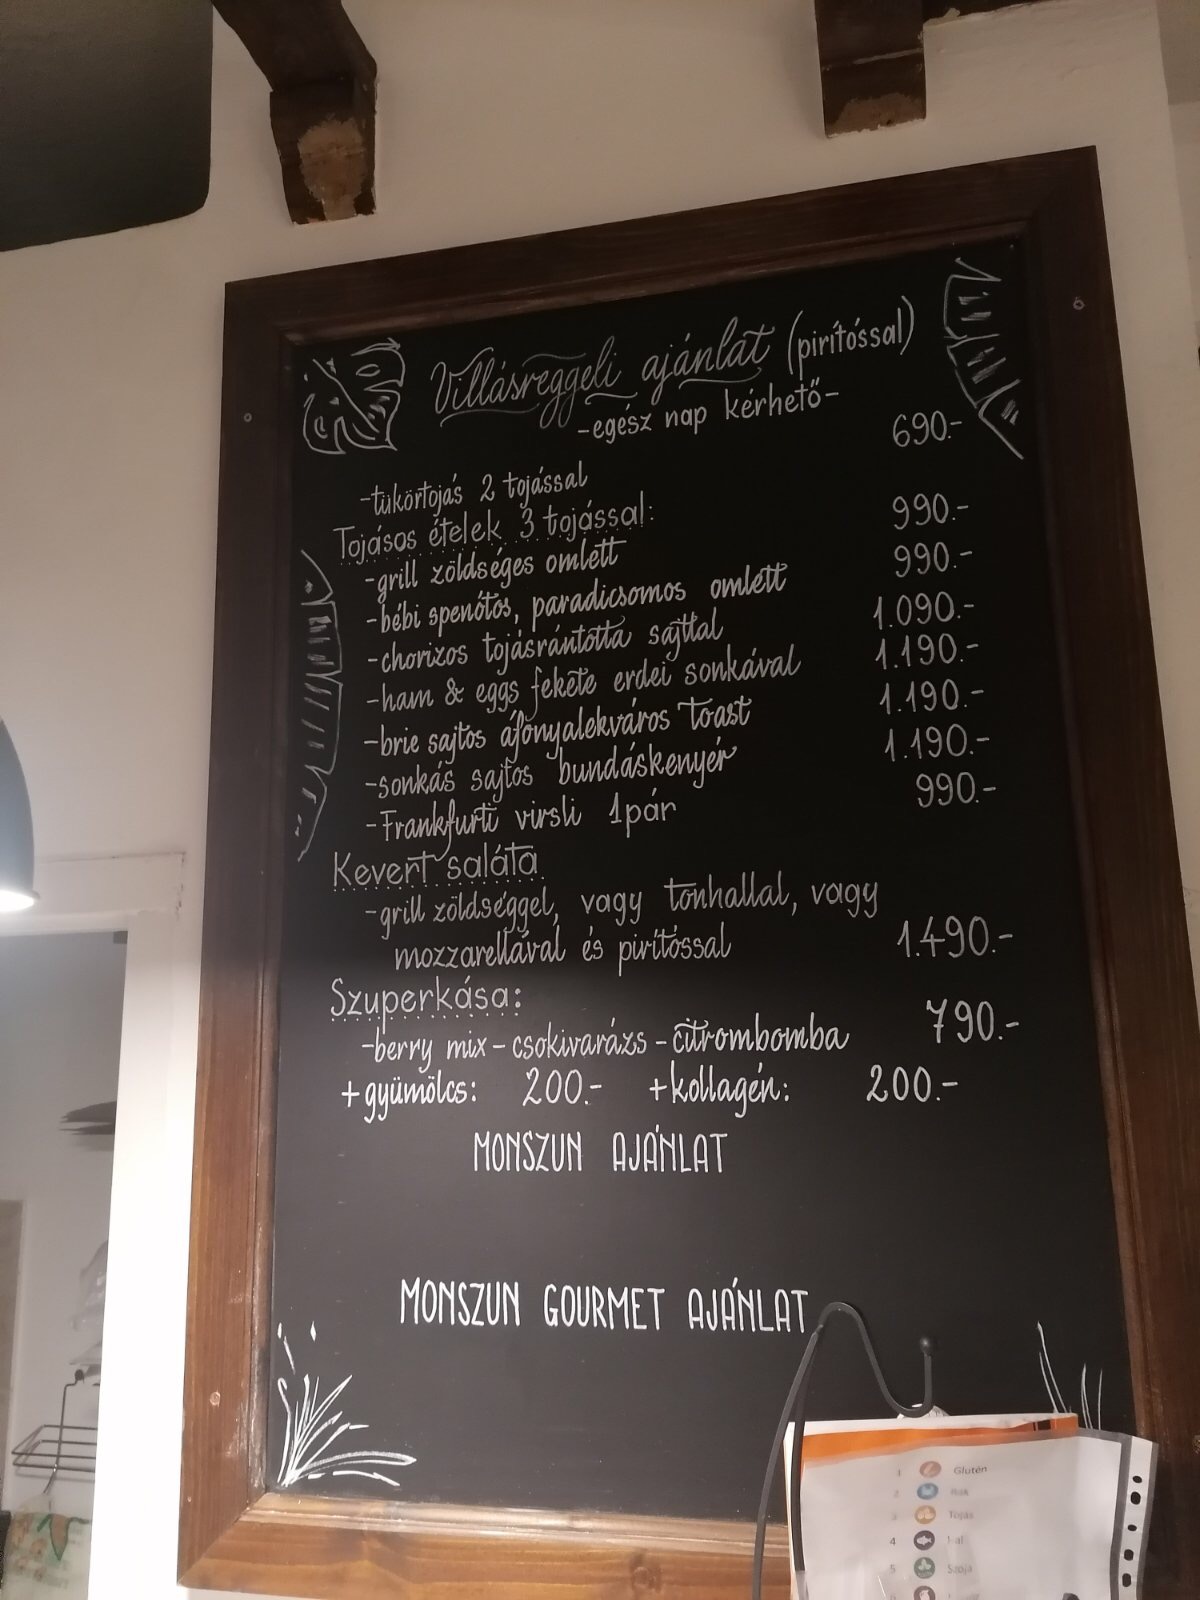 Villásreggeli ajánlat (pirítóssal)
-egész nap kérhető-
-tükörtojás 2 tojással 690.-
Tojásos ételek 3 tojással:
-grill zöldséges omlett 990.-
-bébi spenótos, paradicsomos omlett 990.-
-chorizos tojásrántotta sajttal 1.090.-
-ham & eggs fekete erdei sonkával 1.190.-
-brie sajtos áfonyalekváros toast 1.190.-
-sonkás sajtos bundáskenyér 1.190.-
-Frankfurti virsli 1pár 990.-
Kevert saláta
-grill zöldséggel, vagy tonhallal, vagy
mozzarellával és pirítóssal 1.490.-
Szuperkása:
-berry mix - csokivarázs - citrombomba 790.-
+gyümölcs: 200.- +kollagén: 200.-
MONSZUN AJÁNLAT
MONSZUN GOURMET AJÁNLAT
1 Glutén
2 Rák
3 Tojás
4 Hal
5 Szója